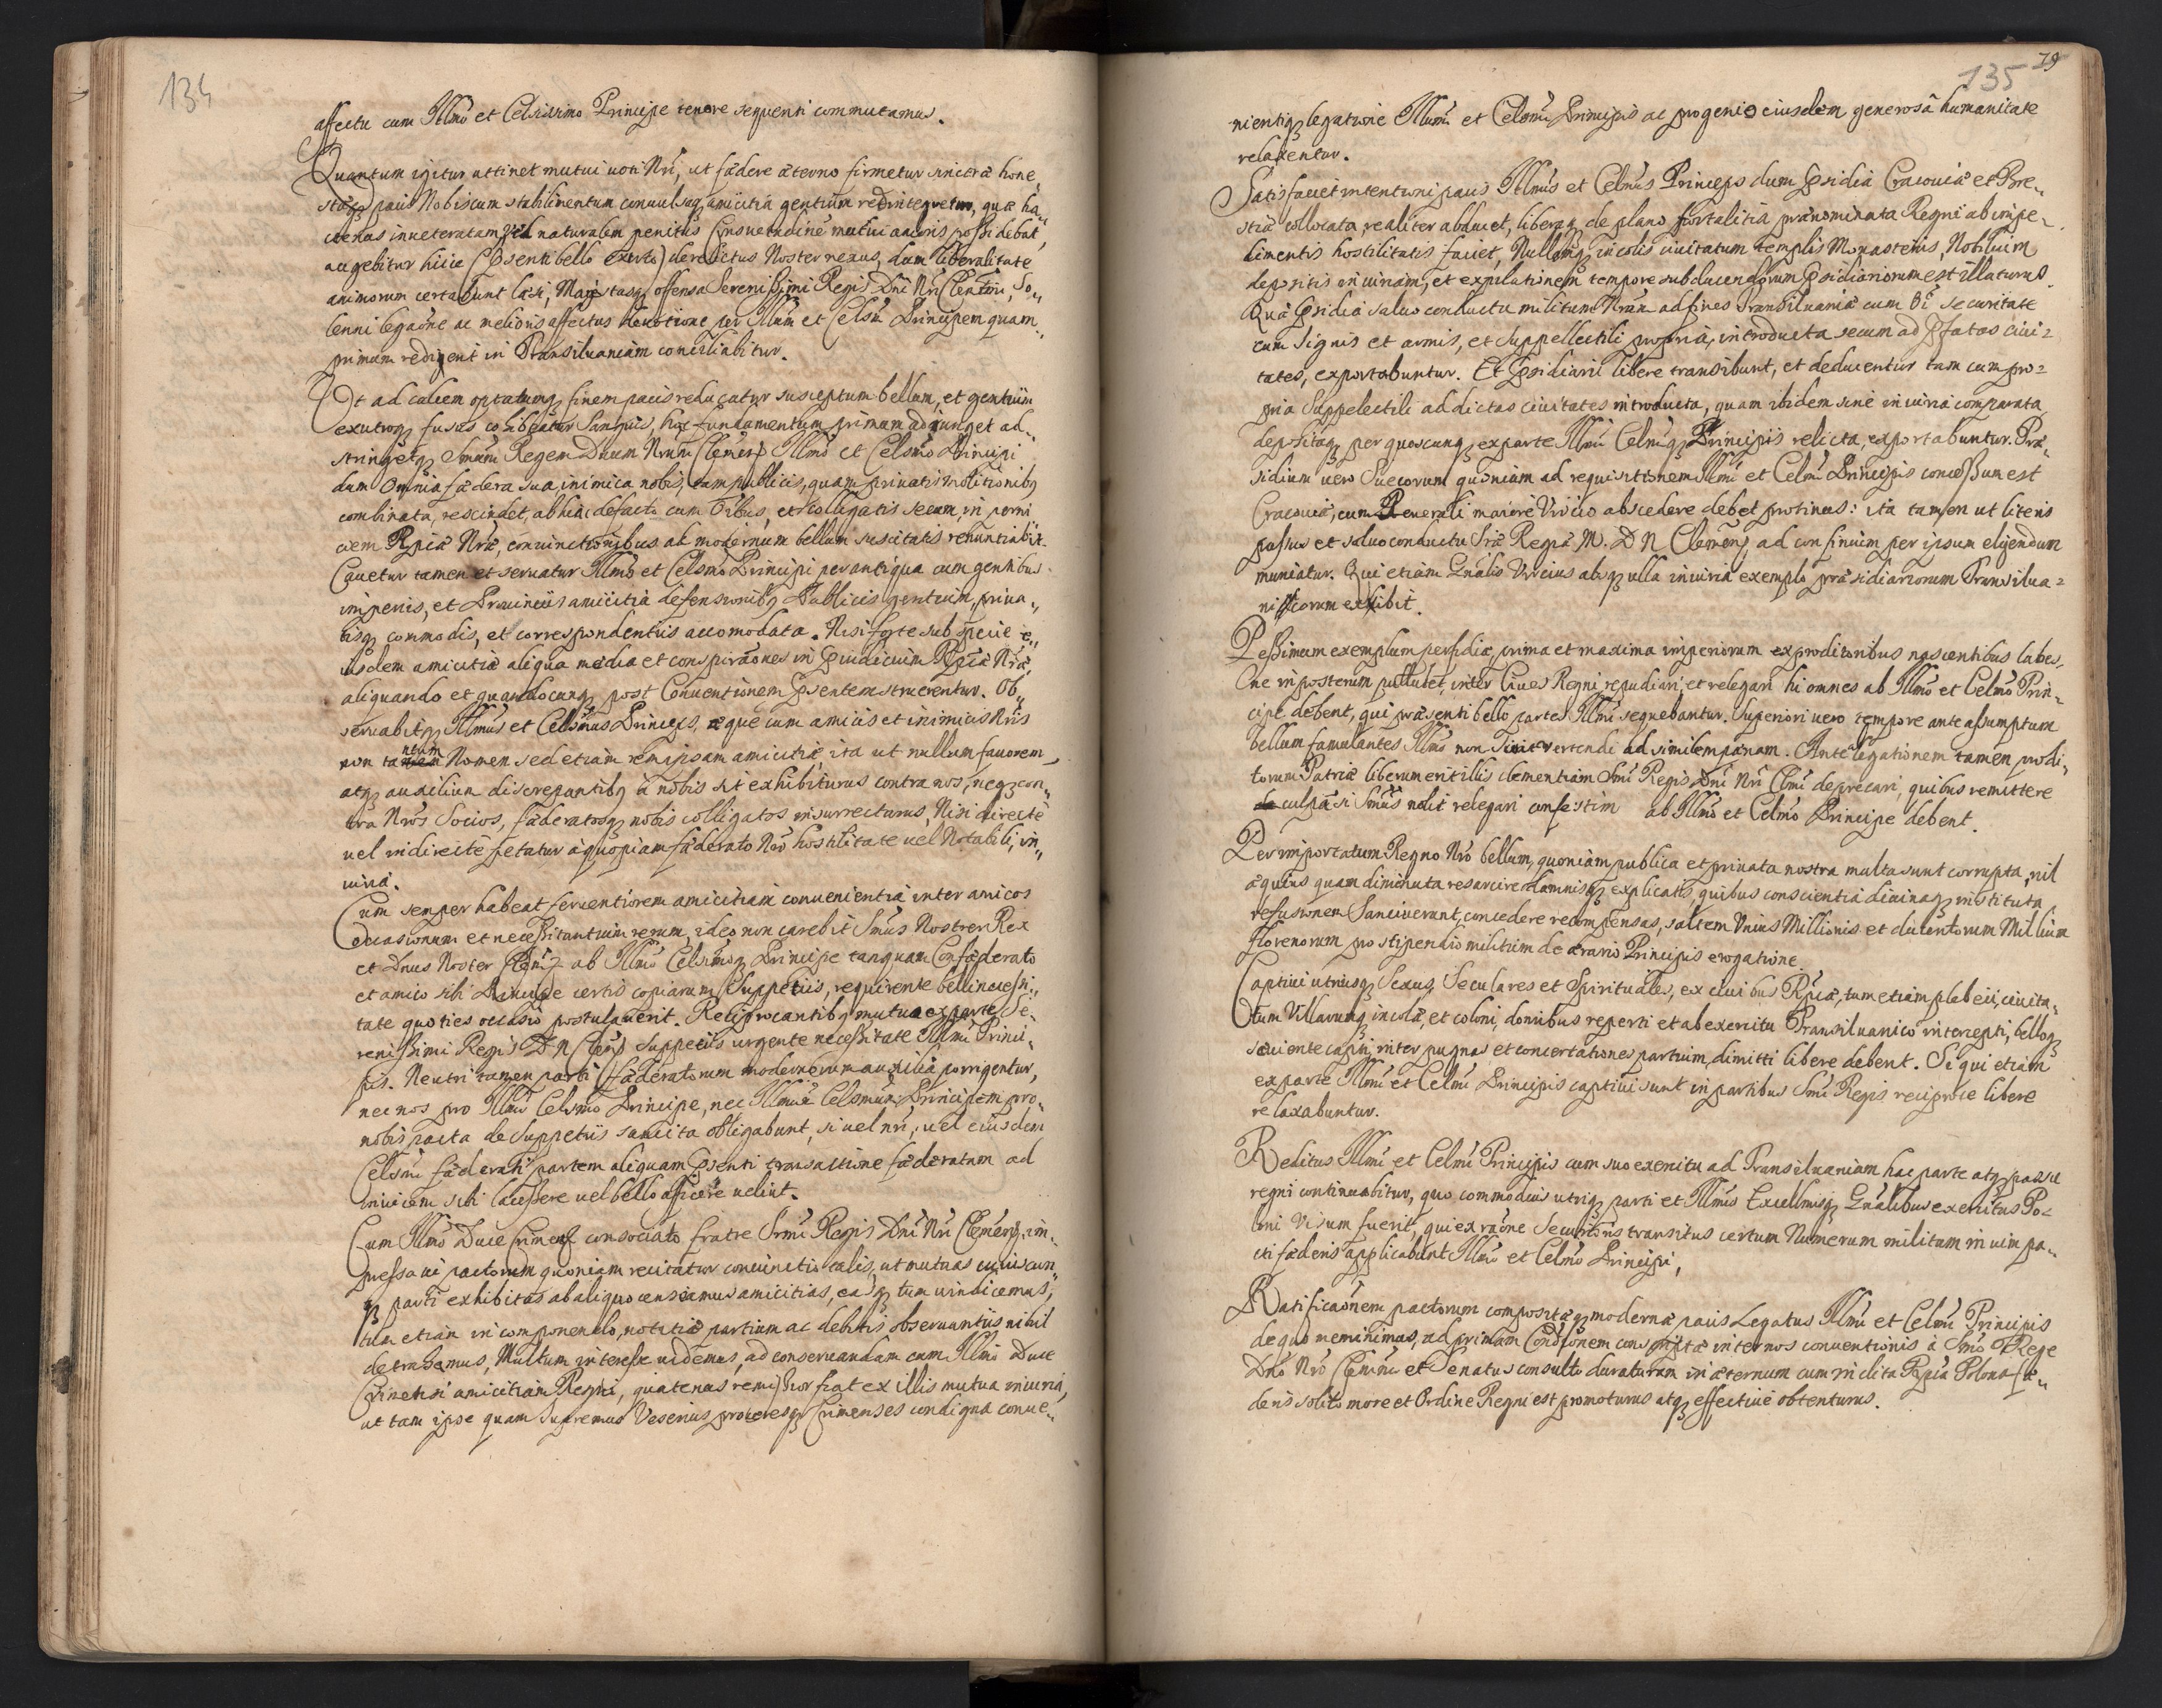 134
affectu cum Illmo et Celsissimo Principe tenore sequenti commutamus.
Quantum igitur attinet mutui uoti Nri, ut fædere æterno firmetur sincera hone„
staqꝫ pacis Nobiscum stabilimentum conuulsaqꝫ amicitia gentium redintegretur, quæ ha„
ctenus inueteratam naturalem penitus Consuetudine mutui amoris possidebat,
augebitur hicce (Psenti bello exerto) derelictus Noster nexus, dum liberalitate
animorum certabunt læsi, Maiestasqꝫ offensa Serenissimi Regis Dni Nri Clemtmi, So„
lenni legaõne ac melioris affectus deuotione per Illum et Celsm Principem quam„
primum redigent in Transiluaniam conciliabitur.
Vt ad calcem optatumqꝫ finem pacis reducatur susceptum bellum, et gentium
exutroqꝫ fusus cohibeatur Sanguis, hoc fundamentum primum adiunget ad„
stringetqꝫ Smum Regem Dnum Nrum Clemenſ Illmo et Celsmo Principi
dum Omnia fædera sua, inimica nobis, tam publicis, quam priuatis molitionibꝫ
combinata, rescindet, abhinc defacto cum Oibus, et colligatis secum, in perni
ciem Rpicæ Nræ, conuinctionibus ad modernum bellum suscitatis renuntiabit.
Cauetur tamen et seruatur Illmo et Celsmo Principi perantiqua cum gentibus
imperijs, et Prouincijs amicitia defensionibꝫ Publicis gentium, priua„
tisqꝫ commodis, et correspondentijs accomodata. Nisi forte sub specie e„
iusdem amicitiæ aliqua media et conspiraões in Piudicium Rpicæ Nræ
aliquando et quandocunqꝫ post Conuentionem Psentem struerentur. Ob„
seruabitqꝫ Illmus et Celsmus Princeps, æque cum amicis et inimicis Nris
non tantum Nomen sed etiam remipsam amicitiæ, ita ut nullum fauorem
atqꝫ auxilium discrepantibꝫ à nobis sit exhibiturus contra nos, neqꝫ con„
tra Nros Socios, fæderatosqꝫ nobis colligatos insurrecturus, Nisi directè
uel indirectè petatur à quopiam fæderato Nro hostilitate uel Notabili, in„
iuria.
Cum semper habeat feruentiorem amicitiam conuenientia inter amicos
Occasionum et necessitantium rerum, ideo non carebit Smus Noster Rex
et Dnus Noster Clem ab Illmo Celsmoqꝫ Principe tanquam Confæderato
et amico sibi Principe certis copiarum Suppetijs, requirente belli necessi„
tate quoties occasio postulauerit. Reciprocantibꝫ mutua ex parte Se„
renissimi Regis D N Clem suppetijs urgente necessitate Illmi Princi„
pis. Neutri tamen parti fæderatorum modernorum auxilia porrigentur,
nec nos pro Illmo Celsmo Principe, nec Illmum Celsmum Principem pro
nobis pacta de Suppetijs sancita obligabunt, si uel nri, uel eiusdem
Celsmi fæderati partem aliquam Psenti transactione fæderatam ad
inuicem sibi lacessere uel bello afficere uelint.
Cum Illmo Duce Crimenſ consociato fratre Srmi Regis Dni Nri Clemenꝫ, im„
pressa ui pactorum quoniam recitatur conuinctio talis, ut mutuas cuiuscun„
qꝫ parti exhibitas ab aliquo censeamus amicitias, easqꝫ tum uindicemus,
tum etiam in componendo, notitiæ partium ac debitis obseruantijs nihil
detrahamus, Multum interesse uidemus, ad conseruandam cum Illmo Duce
Crimensi amicitiam Regni, quatenus remissior fiat ex illis mutua iniuria,
ut tam ipse quam supremus Vesirius proceresqꝫ Crimenses condigna conue„
79
135
nientiqꝫ legatione Illumi et Celsmi Principis ac progenie eiusdem generosâ humanitate
relaxentur.
Satisfaciet intentioni pacis Illmus et Celmus Princeps dum Psidia Cracouiæ et Bre„
stiæ collocata realiter abducet, liberaqꝫ de plano fortalitia prænominata Regni ab impe„
dimentis hostilitatis faciet, Nullamqꝫ incolis ciuitatum templis Monasterijs, Nobilium
depositis iniuriam, et expilationem tempore subducendorum Psidiariorum est illaturus.
Quæ Psidia saluo conductu militum Nrum ad fines Transiluaniæ cum Oi securitate
cum Signis et armis, et suppellectili propria, introducta secum ad Pfatas ciui=
tates, exportabuntur. Et Psidiarii libere transibunt, et deducentur tam cum pro=
pria Suppelectili ad dictas ciuitates introducta, quam ibidem sine iniuria comparata
depositaqꝫ per quoscunqꝫ ex parte Illmi Celmiqꝫ Principis relicta exportabuntur. Præ„
sidium uero Suecorum quoniam ad requisitionem Illmi et Celmi Principis concessum est
Cracouiæ, cum Generali maiore Virtio abscedere debet protinus: ita tamen ut literis
passus et saluoconductu Sræ Regiæ M. D N Clemenꝫ ad confinium per ipsum eligendum
muniatur. Qui etiam Gnalis Vircius absqꝫ ulla iniuria exemplo præsidiariorum Transilua=
nicorum exibit.
Pessimum exemplum perfidiæ, prima et maxima imperiorum ex proditoribus nascentibus labes,
One inposterum pullulet, inter Ciues Regni repudiari, et relegari hi omnes ab Illmo et Celmo Prin„
cipe debent, qui præsenti bello partes Illmi sequebantur. Superiori uero tempore ante assumptum
bellum famulantes Illmo non sint uertendi ad similem pænam. Ante legationem tamen prodi„
torum Patriæ liberum erit illis clementiam Smi Regis Dni Nri Clmi deprecari, quibus remittere
culpæ si Smus nolit relegari confestim ab Illmo et Celmo Principe debent.
Per importatum Regno Nro bellum, quoniam publica et priuata nostra multa sunt corrupta, nil
æquius quam diminuta resarcire damnisqꝫ explicatis quibus conscientia diuinaqꝫ instituta
refusionem Sanciuerant, concedere recompensas, saltem Vnius Millionis et ducentorum Millium
florenorum pro stipendio militum de ærario Principis erogatione.
Captiui utriusqꝫ Sexus, Seculares et Spirituales, ex ciuibus Rpicæ, tum etiam plebeii, ciuita„
tum Villarumqꝫ incolæ, et coloni, domibus reperti et ab exercitu Transiluanico intercepti, belloqꝫ
sæuiente capti inter pugnas et concertationes partium, dimitti libere debent. Si qui etiam
ex parte Illmi et Celmi Principis captiui sunt in partibus Smi Regis reciproce libere
relaxabuntur.
Reditus Illmi et Celmi Principis cum suo exercitu ad Transiluaniam hac parte atqꝫ passu
regni continuabitur, quo commodius utriqꝫ parti et Illmis Excellmisqꝫ Gnalibus exercitus Po=
loni Visum fuerit, qui ex raõne Securioris transitus certum Numerum militum in uim pa„
cti fæderis applicabunt Illmo et Celmo Principi,
Ratificaõnem pactorum compositæqꝫ modernæ pacis Legatus Illmi et Celmi Principis
de quo meminimus, ad primam Condonem conscriptæ inter nos conuentionis à Smo Rege
Dno Nro Clemmo et Senatus consulto duraturam in æternum cum inclita Rpica Polona fæ„
deris solito more et Ordine Regni est promoturus atqꝫ effectiuè obtenturus.